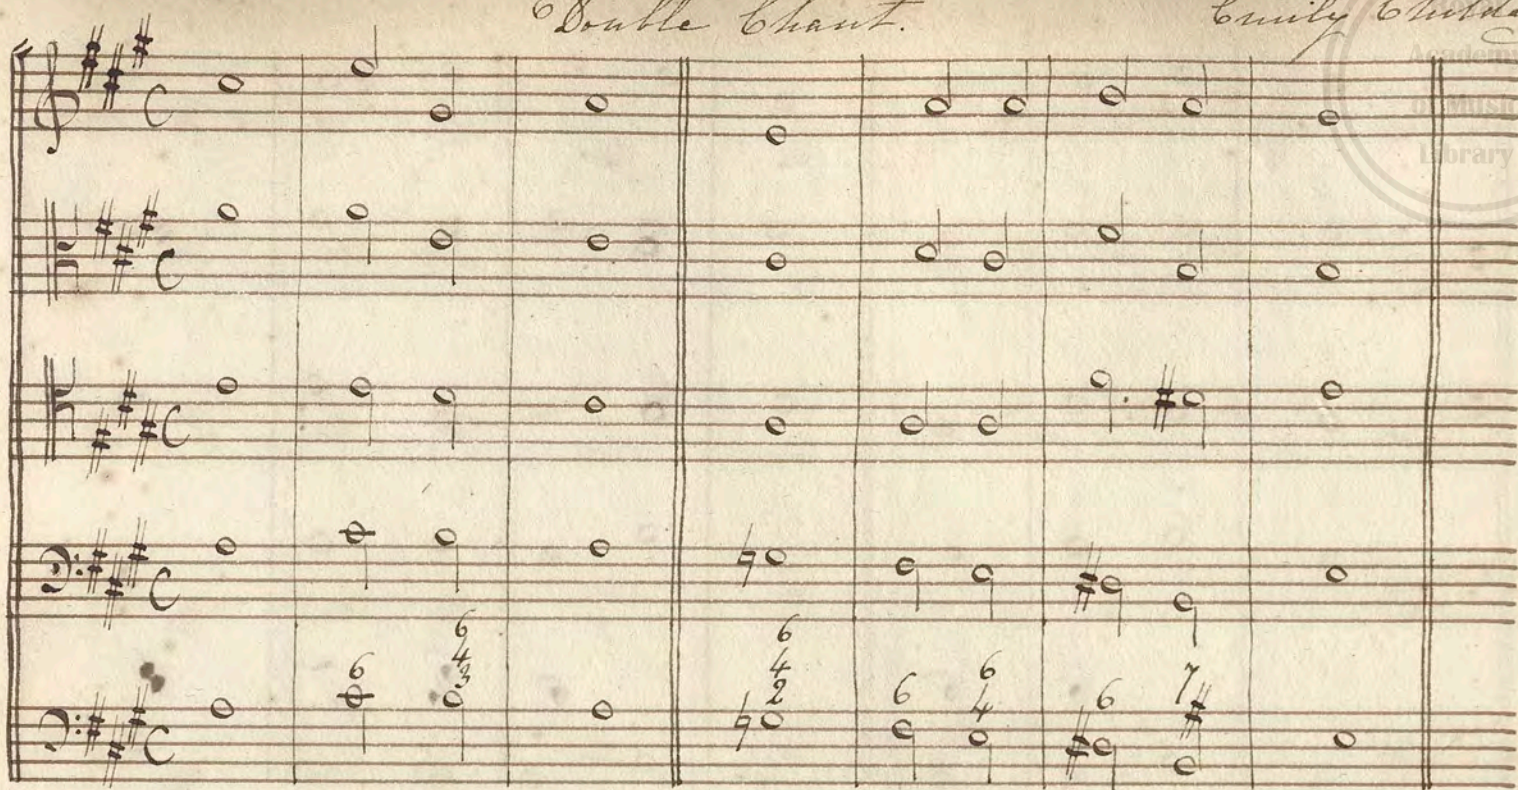 Double Chant. Emily Childe
Academy
of Music
Library
6
4
6 3
6
4
2 6 6
4 6 7